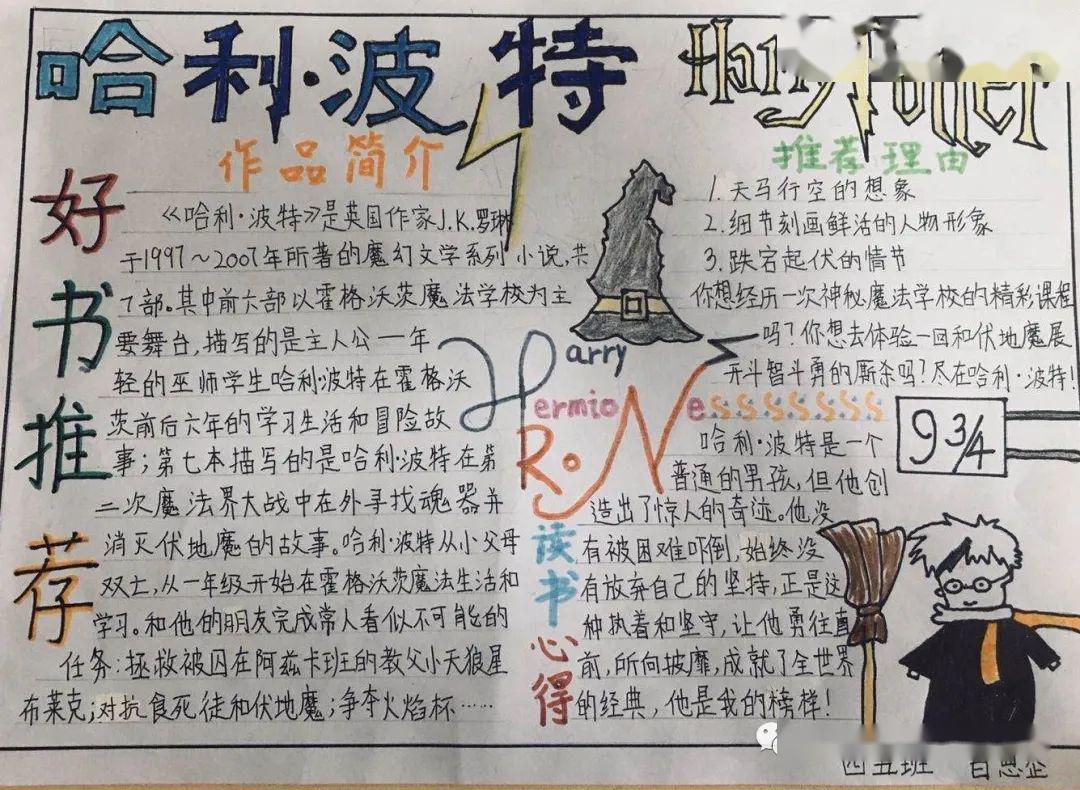 哈利·波特
Harry Potter
好书推荐
作品简介
《哈利·波特》是英国作家J.K.罗琳
于1997~2007年所著的魔幻文学系列小说,共
7部。其中前六部以霍格沃茨魔法学校为主
要舞台,描写的是主人公一年
轻的巫师学生哈利·波特在霍格沃
茨前后六年的学习生活和冒险故
事;第七本描写的是哈利·波特在第
二次魔法界大战中在外寻找魂器并
消灭伏地魔的故事。哈利·波特从小父母
双亡,从一年级开始在霍格沃茨魔法生活和
学习。和他的朋友完成常人看似不可能的
任务:拯救被囚在阿兹卡班的教父小天狼星
布莱克;对抗食死徒和伏地魔;争夺火焰杯……
推荐理由
1.天马行空的想象
2.细节刻画鲜活的人物形象
3.跌宕起伏的情节
你想经历一次神秘魔法学校的精彩课程
吗?你想去体验一回和伏地魔展
开斗智斗勇的厮杀吗?尽在哈利·波特!
Harry
HermioNessssssss
RoN
9 3/4
读书心得
哈利·波特是一个
普通的男孩,但他创
造出了惊人的奇迹。他没
有被困难吓倒,始终没
有放弃自己的坚持,正是这
种执着和坚守,让他勇往直
前,所向披靡,成就了全世界
的经典,他是我的榜样!
四五班